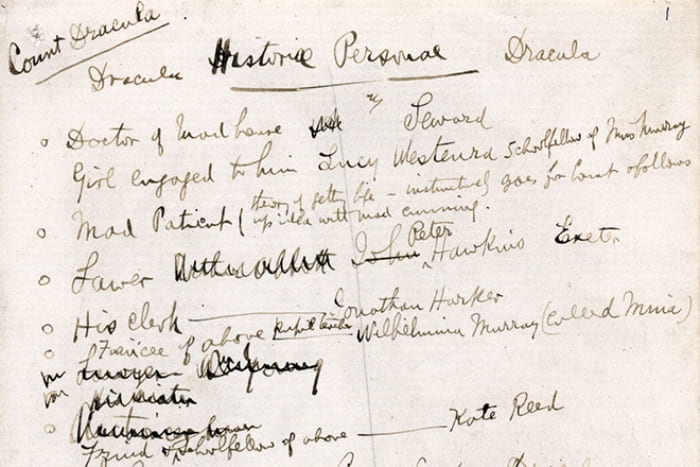 1
Count Dracula
Dracula Historiae Personae Dracula
Doctor of Madhouse Seward
Girl engaged to him Lucy Westenra Schoolfellow of Miss Murray
Mad Patient (theory of getting life – instinctively goes for Count & follows
up idea with mad cunning.
Lawer John Peter Hawkins Exeter
His Clerk Jonathan Harker
Fiancee of above pupil teacher Wilhelmina Murray (called Mina)
Friend & Schoolfellow of above Kate Reed